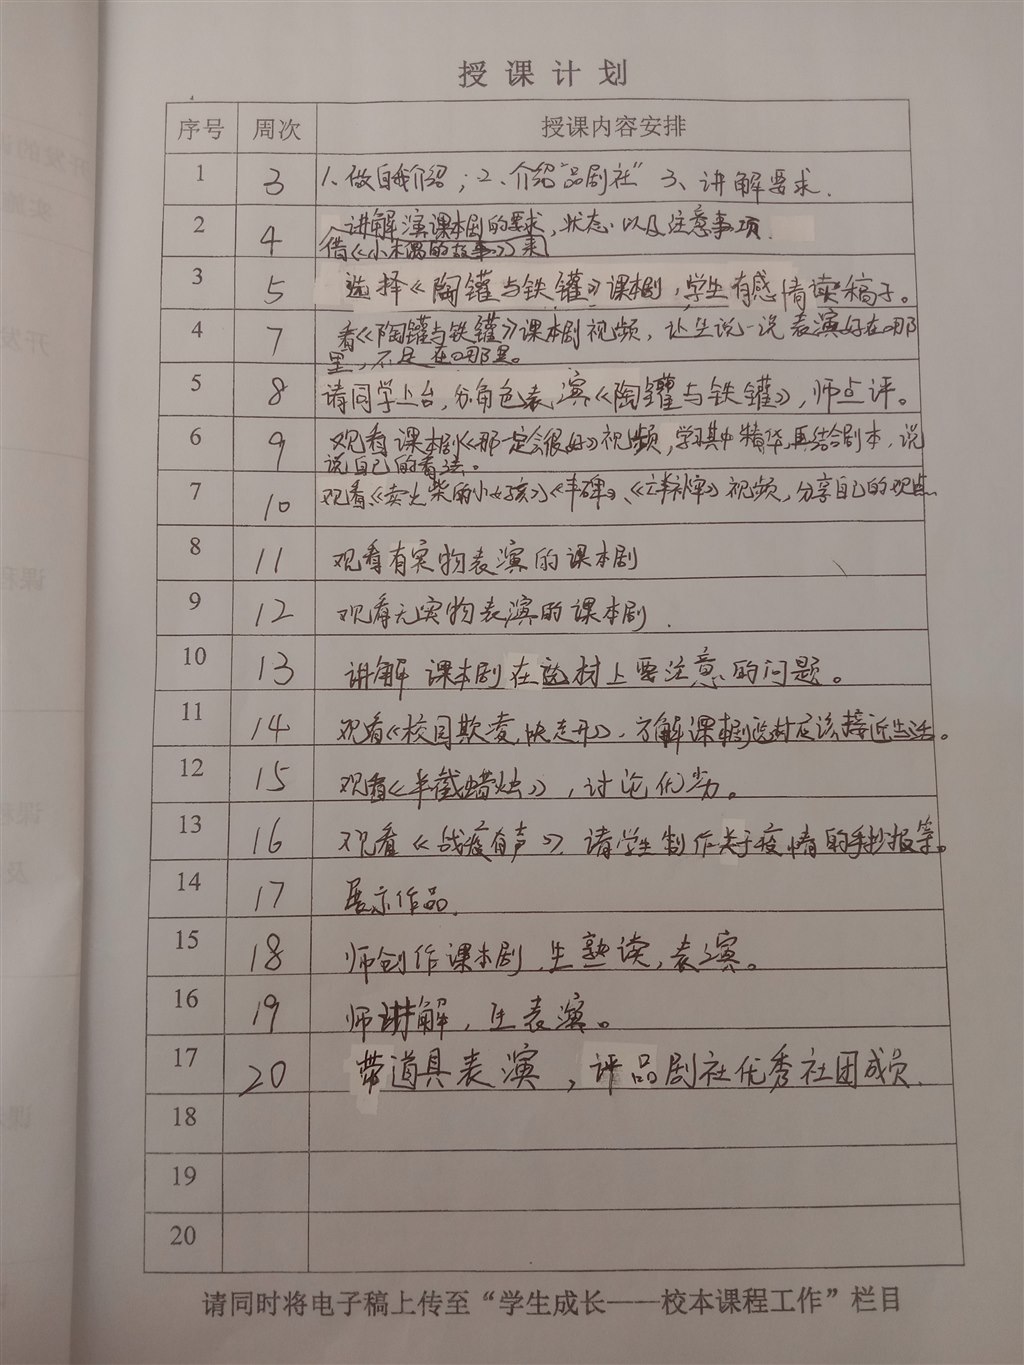 授课计划
序号 周次 授课内容安排
1 3 1、做自我介绍；2、介绍“品剧社” 3、讲解要求.
2 4 讲解演课本剧的要求，状态以及注意事项.
借《小木偶的故事》来
3 5 选择《陶罐与铁罐》课本剧，学生有感情读稿子。
4 7 看《陶罐与铁罐》课本剧视频，让生说一说表演好在哪
里，不足在哪里。
5 8 请同学上台，分角色表演《陶罐与铁罐》，师点评。
6 9 观看课本剧《那一定会很好》视频，学习其中精华，再结合剧本，说
说自己的看法。
7 10 观看《卖火柴的小女孩》《丰碑》、视频，分享自己的观点.
8 11 观看有实物表演的课本剧
9 12 观看无实物表演的课本剧.
10 13 讲解课本剧在选材上要注意的问题。
11 14 观看《校园欺凌，快走开》，了解课本剧选材应该接近生活。
12 15 观看《半截蜡烛》，讨论优劣。
13 16 观看《战疫有声》请学生制作关于疫情的手抄报等。
14 17 展示作品.
15 18 师创作课本剧，生熟读，表演。
16 19 师讲解，生表演。
17 20 带道具表演，评品剧社优秀社团成员.
18
19
20
请同时将电子稿上传至“学生成长——校本课程工作”栏目